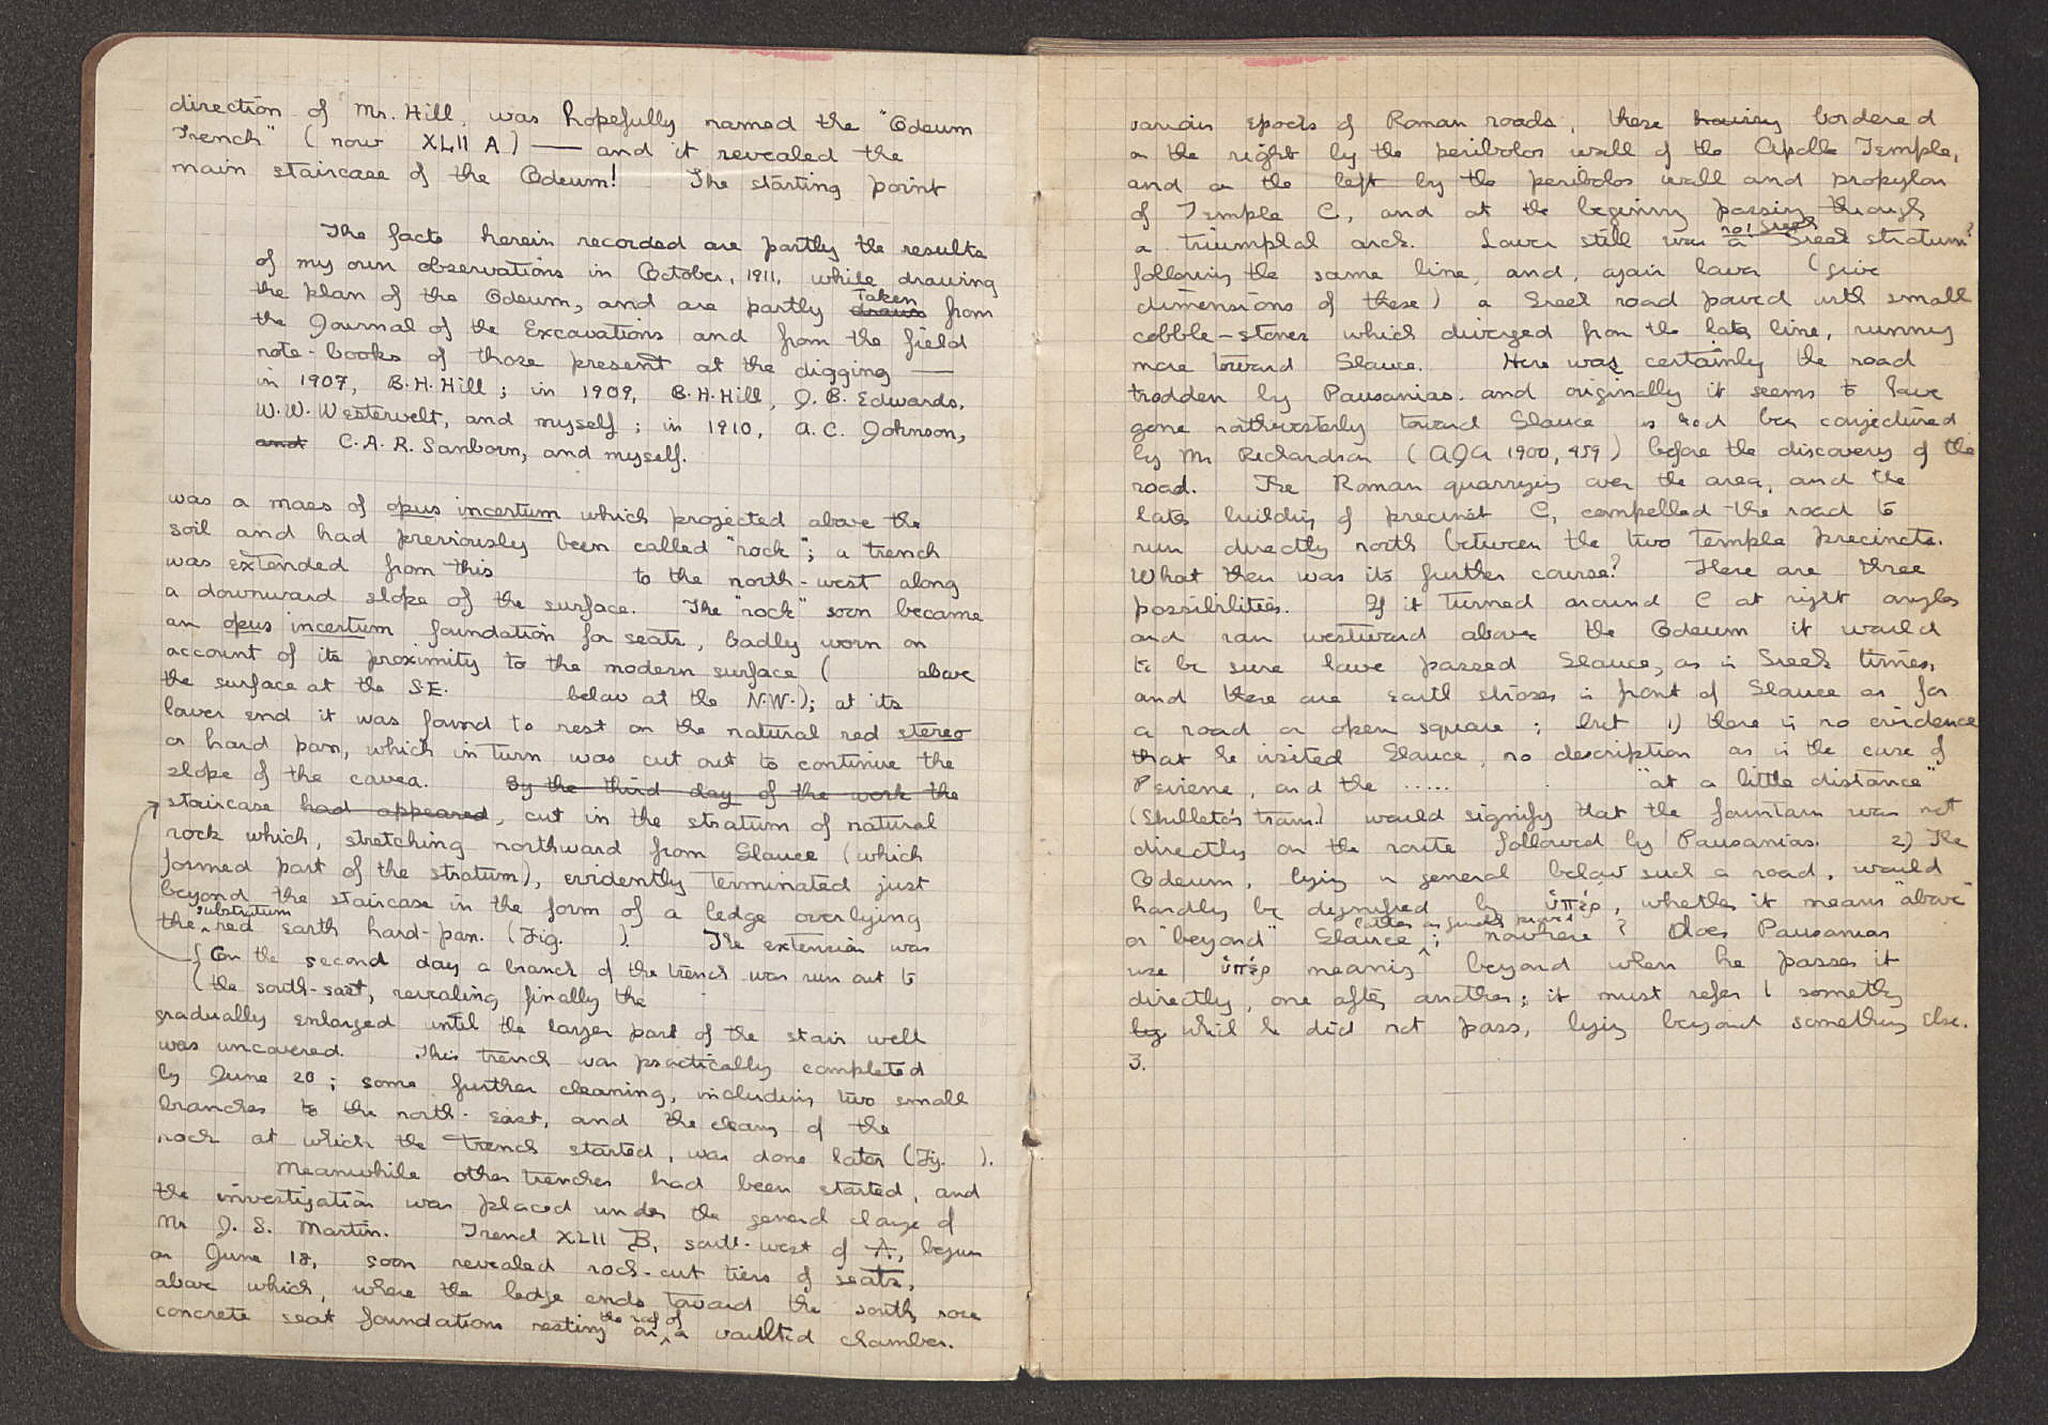 direction of Mr. Hill, was hopefully named the "Odeum
Trench" (now XLII A) — and it revealed the
main staircase of the Odeum! The starting point
The facts herein recorded are partly the results
of my own observations in October, 1911, while drawing
the plan of the Odeum, and are partly drawn Taken from
the Journal of the Excavations and from the field
note-books of those present at the digging —
in 1907, B.H.Hill; in 1909, B.H.Hill, J.B. Edwards,
W.W. Westervelt, and myself; in 1910, A.C. Johnson,
and C.A.R. Sanborn, and myself.
was a mass of opus incertum which projected above the
soil and had previously been called "rock"; a trench
was extended from this to the north-west along
a downward slope of the surface. The "rock" soon became
an opus incertum foundation for seats, badly worn on
account of its proximity to the modern surface ( above
the surface at the S.E. below at the N.W.); at its
lower end it was found to rest on the natural red stereo
or hard pan, which in turn was cut out to continue the
slope of the cavea. By the third day of the work the
staircase had appeared, cut in the stratum of natural
rock which, stretching northward from Glauce (which
formed part of the stratum), evidently terminated just
beyond the staircase in the form of a ledge overlying
the substratum red earth hard-pan. (Fig. ). The extension was
On the second day a branch of the trench was run out to
the south-east, revealing finally the
gradually enlarged until the larger part of the stair well
was uncovered. This trench was practically completed
by June 20; some further cleaning, including two small
branches to the north-east, and the cleang of the
rock at which the trench started, was done later (Fig. ).
Meanwhile other trenches had been started, and
the investigation was placed under the general charge of
Mr J. S. Martin. Trench XLII B, south-west of A, begun
on June 18, soon revealed rock-cut tiers of seats,
above which, where the ledge ends toward the south, rose
concrete seat foundations resting on the roof of a vaulted chamber.
various epochs of Roman roads, these having bordered
on the right by the peribolos wall of the Apollo Temple,
and on the left by the peribolos wall and propylon
of Temple C, and at the beginning passing through
a triumphal arch. Lower still was a no! Greek Greek stratum?
following the same line, and, again lower (give
dimensions of these) a Greek road paved with small
cobble-stones which diverged from the later line, running
more toward Glauce. Here was certainly the road
trodden by Pausanias, and originally it seems to have
gone northwesterly toward Glauce as had been conjectured
by Mr Richardson (AJA 1900, 459) before the discovery of the
road. The Roman quarrying over the area, and the
later building of precinct C, compelled the road to
run directly north between the two temple precincts.
What then was its further course? Here are three
possibilities. If it turned around C at right angles
and ran westward above the Odeum it would
to be sure have passed Glauce, as in Greek times,
and there are earth stroses in front of Glauce as for
a road or open square; but 1) there is no evidence
that he visited Glauce, no description as in the case of
Peirene, and the ...... "at a little distance"
(Shilleto's trans.) would signify that the fountain was not
directly on the route followed by Pausanias. 2) The
Odeum, lying in general below such a road, would
hardly be dignified by ὑπέρ, whether it means "above"
or "beyond" Glauce; nowhere? does Pausanias
use ὑπέρ meaning beyond when he passes it
directly, one after another; it must refer to something
by which he did not pass, lying beyond something else.
3.